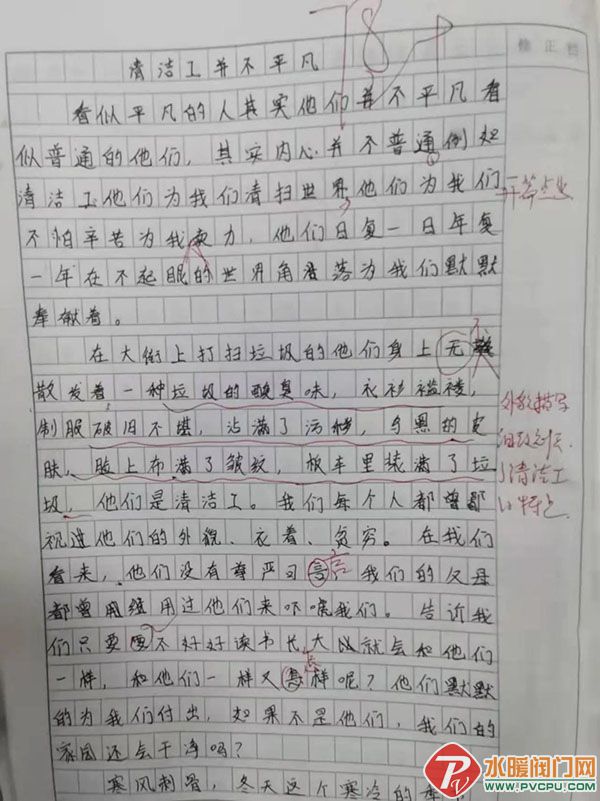 78
修正栏
清洁工并不平凡
看似平凡的人其实他们并不平凡看
似普通的他们，其实内心并不普通例如
清洁工他们为我们清扫世界他们为我们
开篇点业
不怕辛苦为我卖力，他们日复一日年复
一年在不起眼的世界角落为我们默默
奉献着。
在大街上打扫垃圾的他们身上无
散发着一种垃圾的酸臭味，衣衫褴褛，
外貌描写
制服破旧不堪，沾满了污秽，乌黑的皮
肤，脸上布满了皱纹，板车里装满了垃
清洁工
圾，他们是清洁工。我们每个人都曾鄙
特点
视过他们的外貌、衣着、贫穷。在我们
看来，他们没有尊严可言 我们的父母
都曾用过他们来吓唬我们。告诉我
们只要不好好读书长大以就会和他们
一样，和他们一样又怎样呢？他们默默
的为我们付出，如果不是他们，我们的
家园还会干净吗？
寒风刺骨，冬天这个寒冷的季
水暖阀门网
WWW.PVCPU.COM